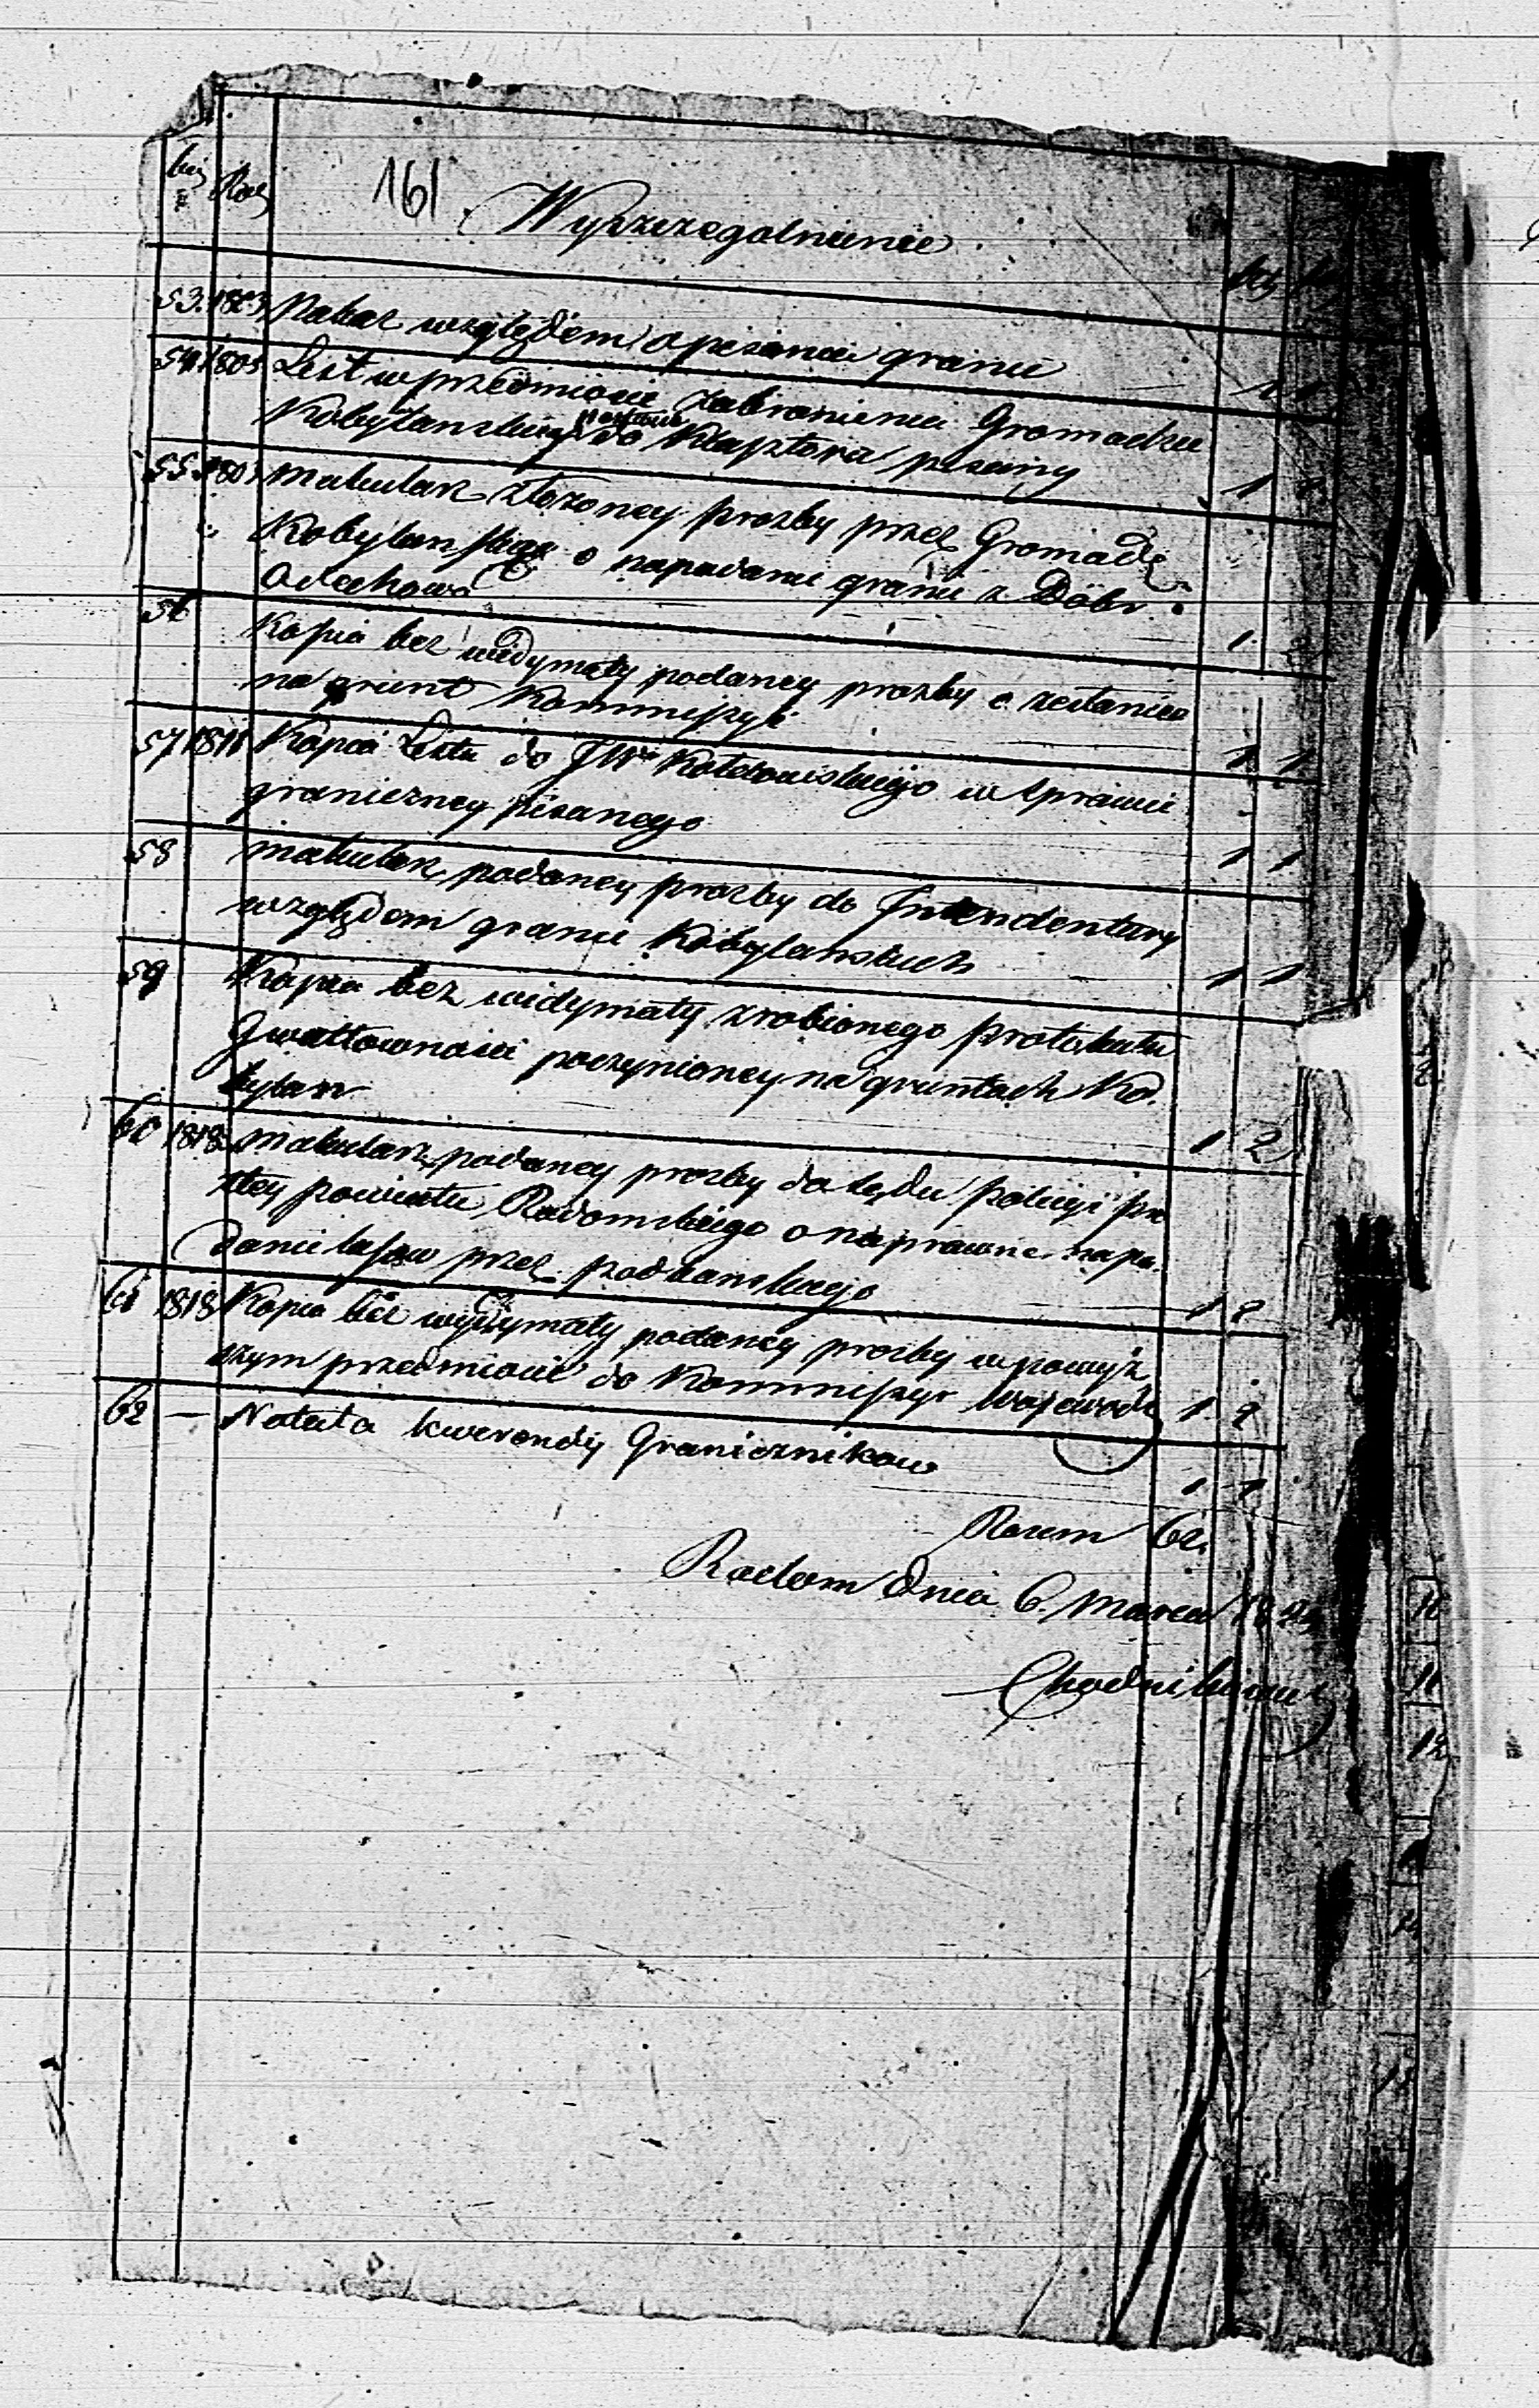 Rok 161 Wyszczegolnienie
53. 1803 Nakaz względem opisania granic
54 1803 List w przedmiocie zabranienia Gromadzie
Kobylanskiey do Klasztora pisany 1
55 1803 makularz złożoney prozby przez Gromadę
Kobylanską o napadanie granic z Dóbr
Odechowa 1
56 Kopia bez widymaty podaney prozby o zesłanie
na grunt Kommissyi 1 1
57 181 Kopia Listu do JWo Kotkowskiego w sprawie
graniczney pisanego 1 1
58 makularz podaney prozby do Intendentury
względem granic Kobylanskich 1 1
59 Kopia bez widymaty zrobionego protokułu
Gwałtowności poczynioney na gruntach Ko.
bylan 1 2
60 1818 makularz podaney prozby do Sądu policyi pro
stey powiatu Radomskiego o naprawne napa.
danie lasow przez podzamskiego 1 2
61 1818 Kopia bez wydymaty podaney prozby w powyż
szym przedmiocie do Kommissyi Wojewodz 1 2
62 — Notata kwerendy Graniczników 1 1
Razem 62.
Radom dnia 6. Marca